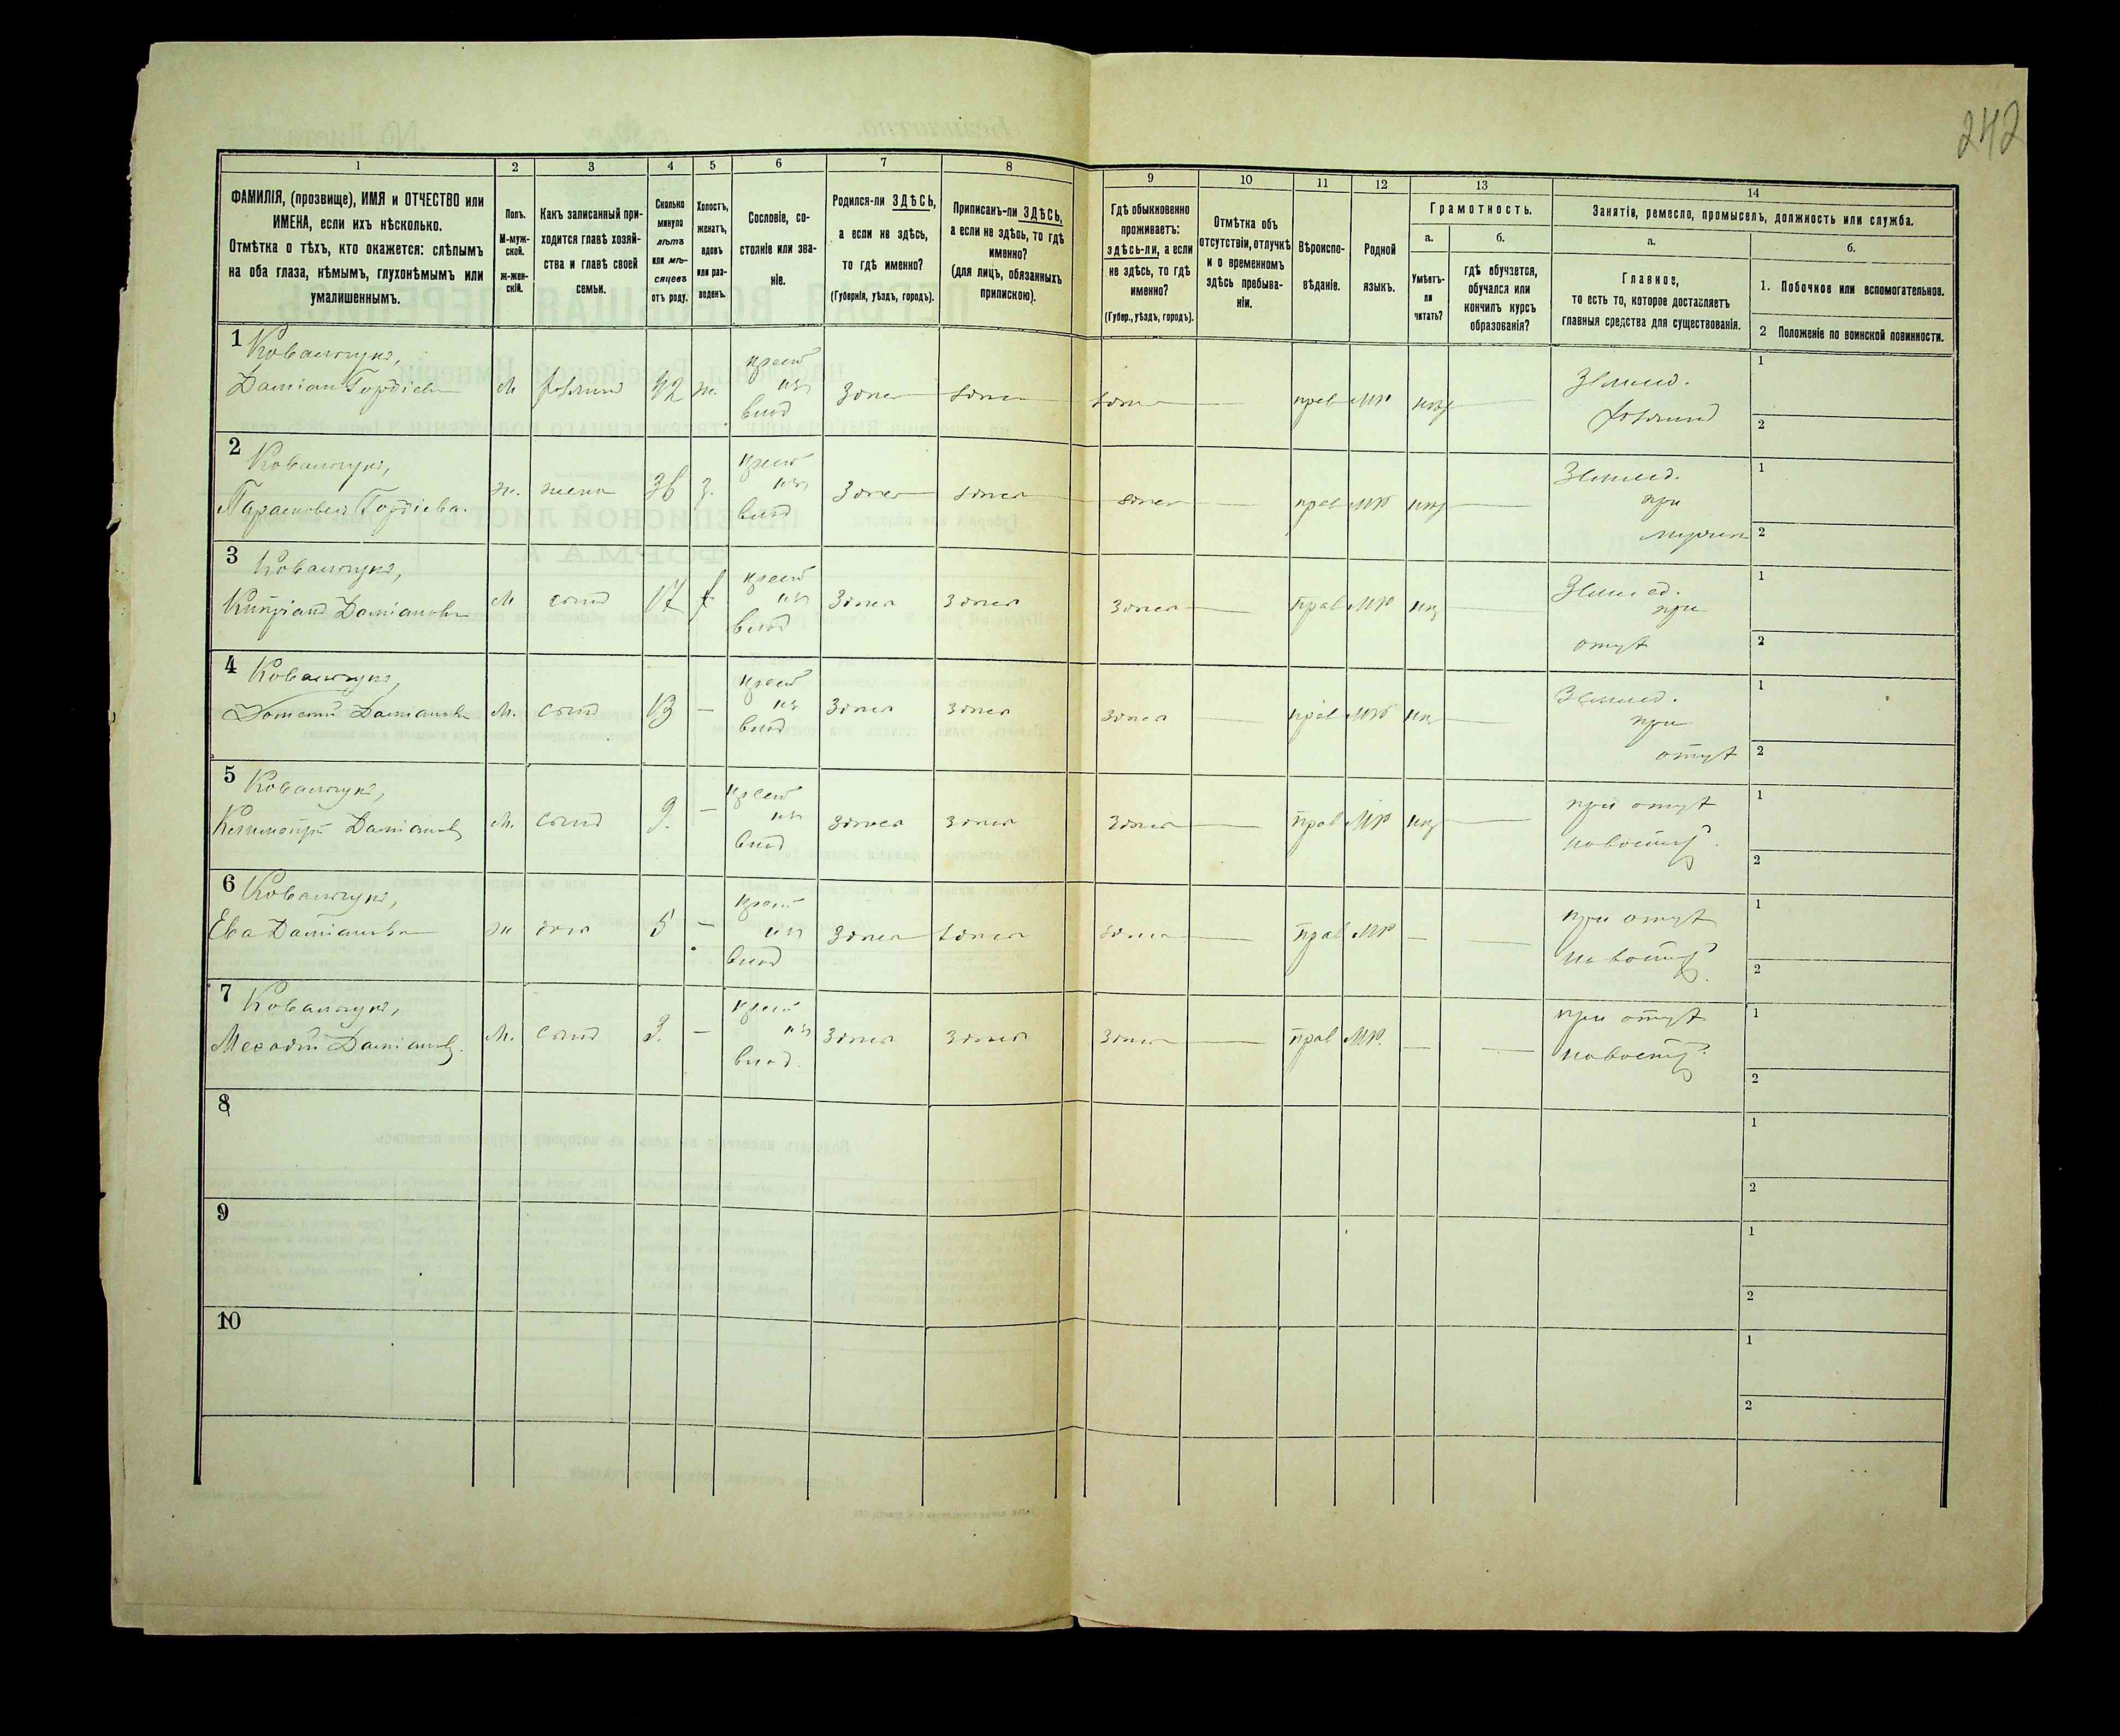 242
1
2
3
4
5
6
7
8
9
10
11
12
13
14
ФАМИЛІЯ, (прозвище), ИМЯ и ОТЧЕСТВО или
ИМЕНА, если ихъ нѣсколько.
Отмѣтка о тѣхъ, кто окажется: слѣпымъ
на оба глаза, нѣмымъ, глухонѣмымъ или
умалишеннымъ.
Полъ.
М-муж-
ской.
ж-жен-
скій.
Какъ записанный при-
ходится главѣ хозяй-
ства и главѣ своей
семьи.
Сколько
минуло
лѣтъ
или мѣ-
сяцевъ
отъ роду.
Холостъ,
женатъ,
вдовъ
или раз-
веденъ.
Сословіе, со-
стояніе или зва-
ніе.
Родился-ли ЗДѢСЬ,
а если не здѣсь,
то гдѣ именно?
(Губернія, уѣздъ, городъ).
Приписанъ-ли ЗДѢСЬ,
а если не здѣсь, то гдѣ
именно?
(для лицъ, обязанныхъ
припискою).
Гдѣ обыкновенно
проживаетъ:
здѣсь-ли, а если
не здѣсь, то гдѣ
именно?
(Губер., уѣздъ, городъ).
Отмѣтка объ
отсутствіи, отлучкѣ
и о временномъ
здѣсь пребыва-
ніи.
Вѣроиспо-
вѣданіе.
Родной
языкъ.
Грамотность.
а.
Умѣетъ-
ли
читать?
б.
гдѣ обучается,
обучался или
кончилъ курсъ
образованія?
Занятіе, ремесло, промыселъ, должность или служба.
а.
Главное,
то есть то, которое доставляетъ
главныя средства для существованія.
б.
1. Побочное или вспомогательное.
2 Положеніе по воинской повинности.
1 Ковальчукъ,
Даміанъ Гордіевъ м хозяинъ 42 ж. крест из влад здесь здесь здесь — прав мр — землед. хозяинъ 1 2
2 Ковальчукъ,
Параскевья Гордіева. ж. жена 36 з. крест из влад здесь здесь здесь — прав мр — землед. при мужи 1 2
3 Ковальчукъ,
Кипріанъ Даміановъ м сынъ 17 х крест из влад здесь здесь здесь — прав мр — землед. при отцѣ 1 2
4 Ковальчукъ,
Даміановъ м. сынъ 13 — крест из влад здесь здесь здесь — прав мр — землед. при отцѣ 1 2
5 Ковальчукъ,
Даміановъ м. сынъ 9. — крест из влад здесь здесь здесь — прав мр — при отцѣ 1 2
6 Ковальчукъ,
Ева Даміанова ж доч 5 — крест из влад здесь здесь здесь — прав мр — — при отцѣ 1 2
7 Ковальчукъ,
Меѳодій Даміановъ. м. сынъ 3. — крест из влад. здесь здесь здесь — прав мр. — — при отцѣ 1 2
8 1 2
9 1 2
10 1 2